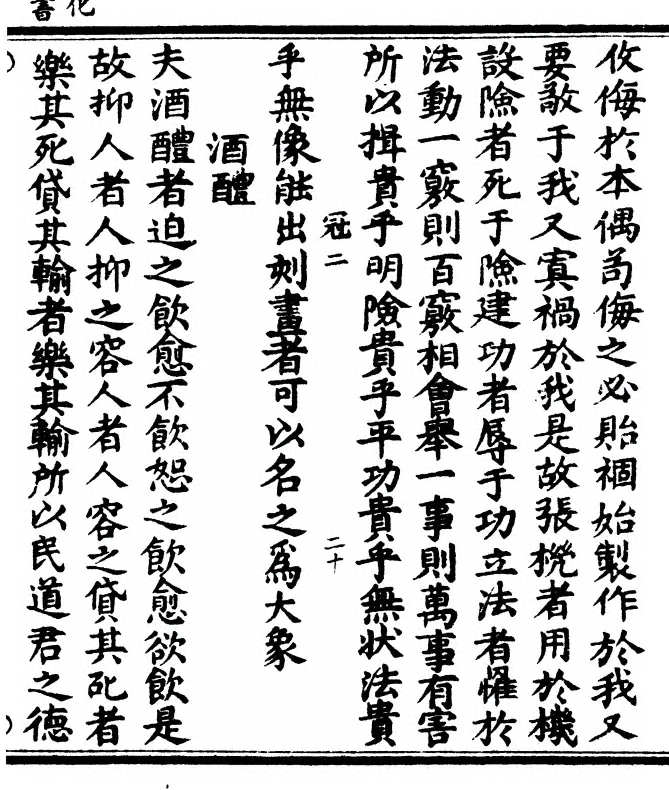 化書
攸侮於本偶苟侮之必貽禍始製作於我又
要敵于我又寘禍於我是故張機者用於機
設險者死于險建功者辱于功立法者懼於
法動一竅則百竅相會舉一事則萬事有害
所以揖貴乎明險貴乎平功貴乎無狀法貴
冠二 二十
乎無像能出刻畫者可以名之爲大象
酒醴
夫酒醴者迫之飲愈不飲恕之飲愈欲飲是
故抑人者人抑之容人者人容之貸其死者
樂其死貸其輸者樂其輸所以民道君之德